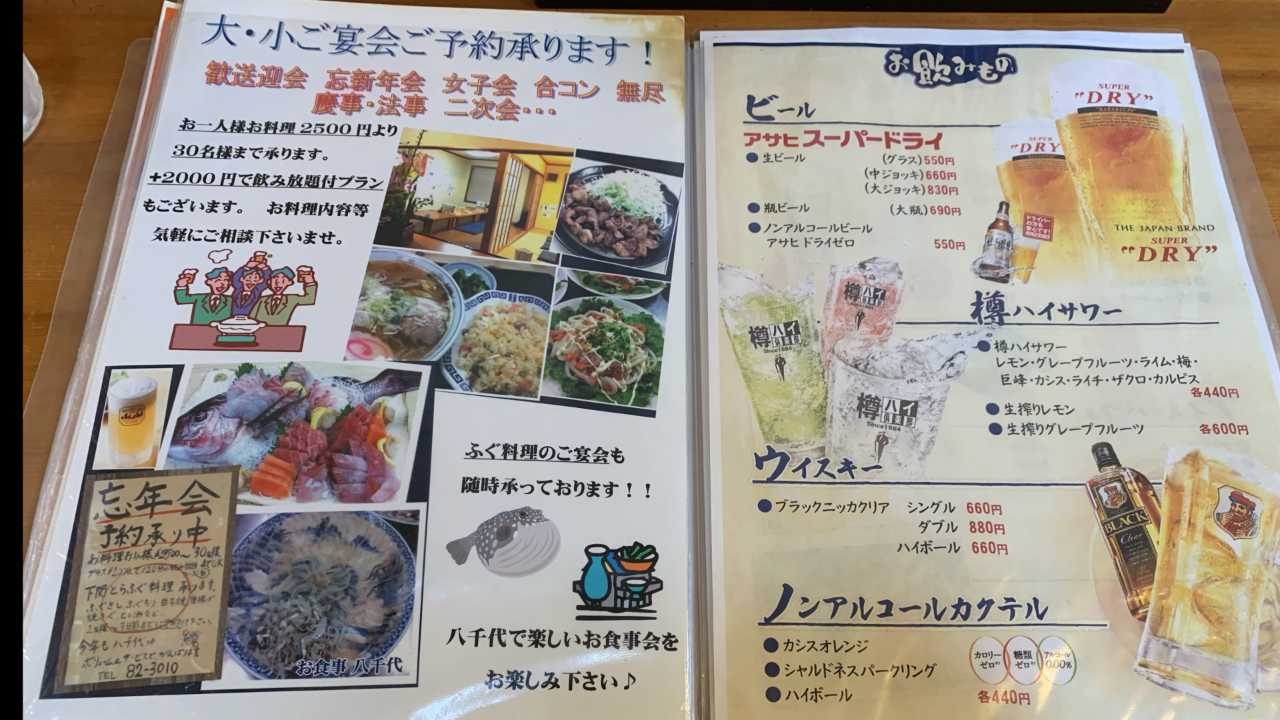 大・小ご宴会ご予約承ります！
歓送迎会 忘新年会 女子会 合コン 無尽
慶事・法事 二次会・・・
お一人様お料理2500円より
30名様まで承ります。
+2000円で飲み放題付プラン
もございます。 お料理内容等
気軽にご相談下さいませ。
忘年会
予約承り中
下関とらふぐ料理 承ります。
今年も八千代は
TEL 82-3010
お食事 八千代
ふぐ料理のご宴会も
随時承っております！！
八千代で楽しいお食事会を
お楽しみ下さい♪
お飲みもの
ビール
アサヒスーパードライ
●生ビール (グラス)550円
(中ジョッキ)660円
(大ジョッキ)830円
●瓶ビール (大瓶)690円
●ノンアルコールビール
アサヒドライゼロ 550円
SUPER
"DRY"
SUPER
"DRY"
THE JAPAN BRAND
SUPER
"DRY"
樽ハイサワー
●樽ハイサワー
レモン・グレープフルーツ・ライム・梅・
巨峰・カシス・ライチ・ザクロ・カルピス
各440円
●生搾りレモン
●生搾りグレープフルーツ 各600円
樽ハイ
樽ハイ
Since1984
樽ハイ
Since1984
ウイスキー
●ブラックニッカクリア シングル 660円
ダブル 880円
ハイボール 660円
BLACK
Clear
ノンアルコールカクテル
●カシスオレンジ
●シャルドネスパークリング
●ハイボール
カロリーゼロ
糖類ゼロ
アルコール0.00%
各440円